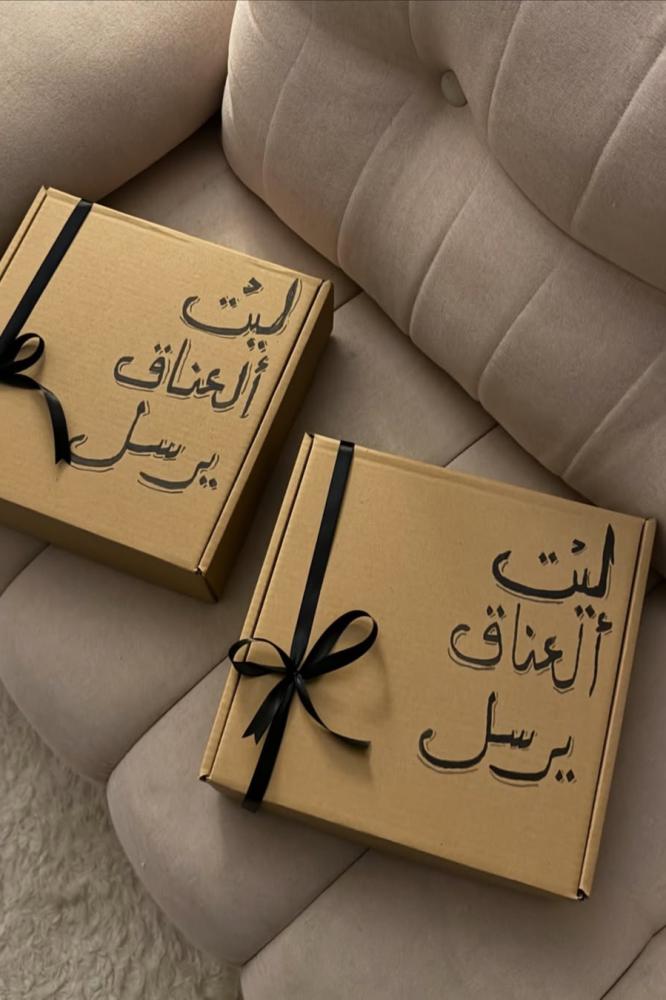 ليت
ألعناق
يرسل
ليت
ألعناق
يرسل